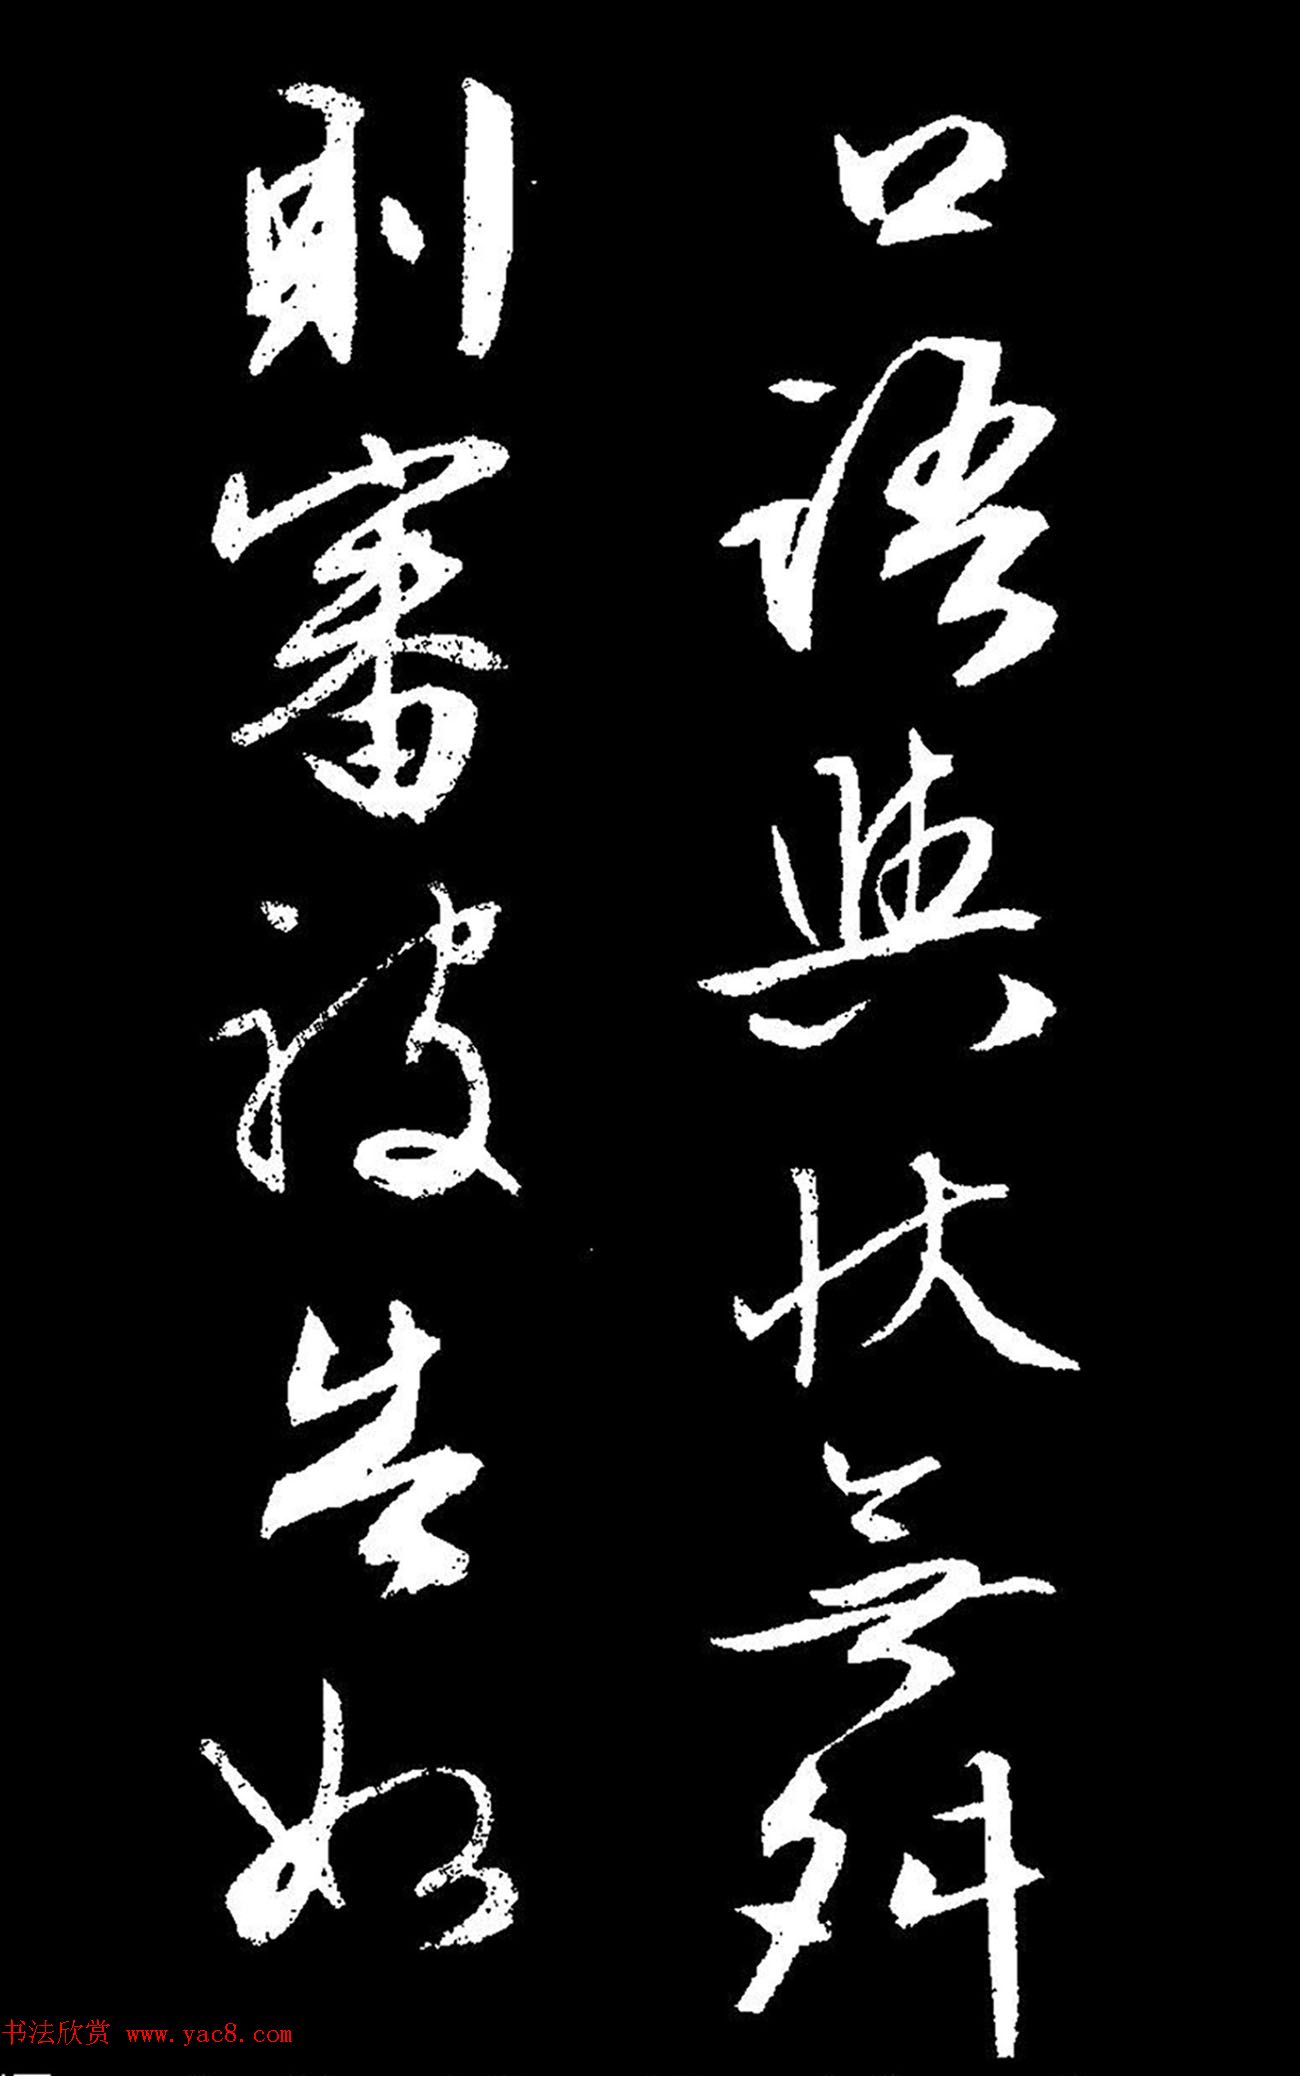 口語與狀無糾
則審被告如
书法欣赏 www.yac8.com